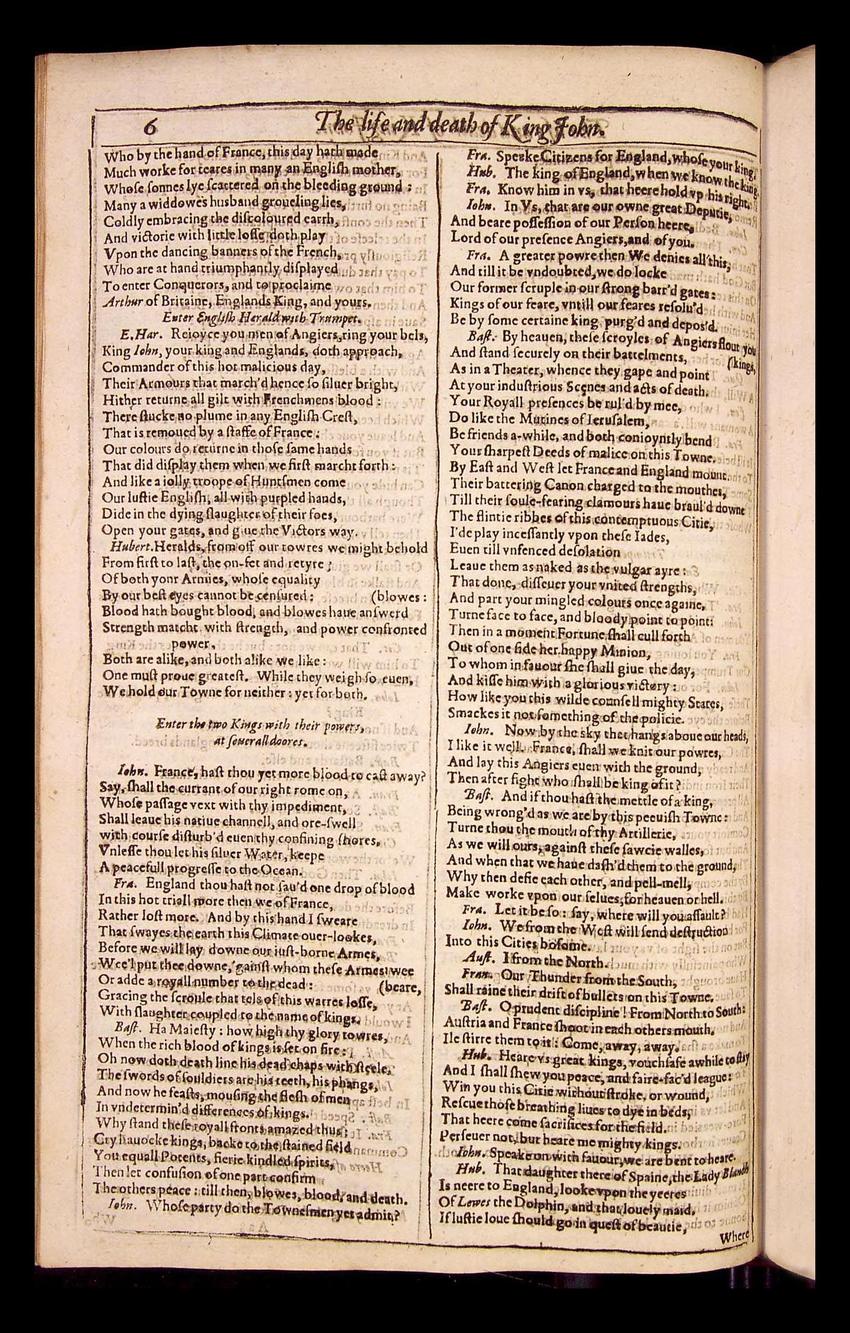 6
The life and death of King John.
Who by the hand of France, this day hath made
Much worke for teares in many an English mother,
Whose sonnes lye scattered on the bleeding ground :
Many a widdowes husband groueling lies,
Coldly embracing the discoloured earth,
And victorie with little losse doth play
Vpon the dancing banners of the French,
Who are at hand triumphantly displayed
To enter Conquerors, and to proclaime
Arthur of Britaine, Englands King, and yours.
Enter English Herald with Trumpet.
E.Har. Reioyce you men of Angiers,ring your bels,
King Iohn, your king and Englands, doth approach,
Commander of this hot malicious day,
Their Armours that march'd hence so siluer bright,
Hither returne all gilt with Frenchmens blood :
There stucke no plume in any English Crest,
That is remoued by a staffe of France.
Our colours do returne in those same hands
That did display them when we first marcht forth :
And like a iolly troope of Huntsmen come
Our lustie English, all with purpled hands,
Dide in the dying slaughter of their foes,
Open your gates, and giue the Victors way.
Hubert.Heralds, from off our towres we might behold
From first to last, the on-set and retyre ;
Of both yonr Armies, whose equality
By our best eyes cannot be censured : (blowes :
Blood hath bought blood, and blowes haue answerd
Strength matcht with strength, and power confronted
power,
Both are alike, and both alike we like :
One must proue greatest. While they weigh so euen,
We hold our Towne for neither : yet for both.
Enter the two Kings with their powers,
at seuerall doores.
Iohn. France, hast thou yet more blood to cast away?
Say, shall the currant of our right rome on,
Whose passage vext with thy impediment,
Shall leaue his natiue channell, and ore-swell
with course disturb'd euen thy confining shores,
Vnlesse thou let his siluer Water, keepe
A peacefull progresse to the Ocean.
Fra. England thou hast not sau'd one drop of blood
In this hot triall more then we of France,
Rather lost more. And by this hand I sweare
That swayes the earth this Climate ouer-lookes,
Before we will lay downe our iust-borne Armes,
Wee'l put thee downe,'gainst whom these Armes wee
Or adde a royall number to the dead : (beare,
Gracing the scroule that tels of this warres losse,
With slaughter coupled to the name of kings.
Bast. Ha Maiesty : how high thy glory towres,
When the rich blood of kings is set on fire :
Oh now doth death line his dead chaps with steele,
The swords of souldiers are his teeth, his phangs,
And now he feasts, mousing the flesh of men
In vndetermin'd differences of kings.
Why stand these royall fronts amazed thus :
Cry hauocke kings, backe to the stained field
You equall Potents, fierie kindled spirits,
Then let confusion of one part confirm
The others peace : till then, blowes, blood, and death.
Iohn. Whose party do the Townesmen yet admit?
Fra. Speake Citizens for England, whose your king.
Hub. The king of England, when we know the king.
Fra. Know him in vs, that heere hold vp his right.
Iohn. In Vs, that are our owne great Deputie,
And beare possession of our Person heere,
Lord of our presence Angiers,and of you.
Fra. A greater powre then We denies all this,
And till it be vndoubted,we do locke
Our former scruple in our strong barr'd gates :
Kings of our feare, vntill our feares resolu'd
Be by some certaine king, purg'd and depos'd.
Bast. By heauen, these scroyles of Angiers flout you
And stand securely on their battelments, (kings,
As in a Theater, whence they gape and point
At your industrious Scenes and acts of death.
Your Royall presences be rul'd by mee,
Do like the Mutines of Ierusalem,
Be friends a-while, and both conioyntly bend
Your sharpest Deeds of malice on this Towne.
By East and West let France and England mount.
Their battering Canon charged to the mouthes,
Till their soule-fearing clamours haue braul'd downe
The flintie ribbes of this contemptuous Citie,
I'de play incessantly vpon these Iades,
Euen till vnfenced desolation
Leaue them as naked as the vulgar ayre :
That done, disseuer your vnited strengths,
And part your mingled colours once againe,
Turne face to face, and bloody point to point:
Then in a moment Fortune shall cull forth
Out of one side her happy Minion,
To whom in fauour she shall giue the day,
And kisse him with a glorious victory :
How like you this wilde counsell mighty States,
Smackes it not something of the policie.
Iohn. Now by the sky that hangs aboue our heads,
I like it well. France, shall we knit our powres,
And lay this Angiers euen with the ground,
Then after fight who shall be king of it?
Bast. And if thou hast the mettle of a king,
Being wrong'd as we are by this peeuish Towne :
Turne thou the mouth of thy Artillerie,
As we will ours, against these sawcie walles,
And when that we haue dash'd them to the ground,
Why then defie each other, and pell-mell,
Make worke vpon our selues,for heauen or hell.
Fra. Let it be so : say, where will you assault?
Iohn. We from the West will send destruction
Into this Cities bosome.
Aust. I from the North.
Fran. Our Thunder from the South,
Shall raine their drift of bullets on this Towne.
Bast. O prudent discipline! From North to South:
Austria and France shoot in each others mouth.
Ile stirre them to it : Come, away, away.
Hub. Heare vs great kings, vouchsafe awhile to stay
And I shall shew you peace, and faire-fac'd league:
Win you this Citie without stroke, or wound,
Rescue those breathing liues to dye in beds,
That heere come sacrifices for the field.
Perseuer not, but heare me mighty kings.
Iohn. Speake on with fauour,we are bent to heare.
Hub. That daughter there of Spaine, the Lady Blanch
Is neere to England, looke vpon the yeeres
Of Lewes the Dolphin, and that louely maid.
If lustie loue should go in quest of beautie,
Where